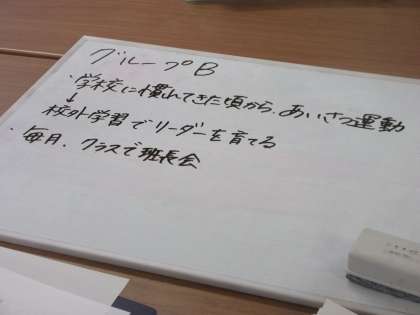 グループB
・学校に慣れてきた頃から、あいさつ運動
↓
校外学習でリーダーを育てる
・毎月、クラスで班長会